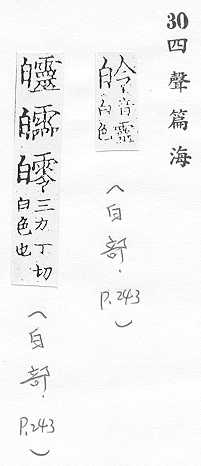 30四聲篇海
皊音靈白色
(白部.P.243)
三力丁切白色也
(白部.P.243)